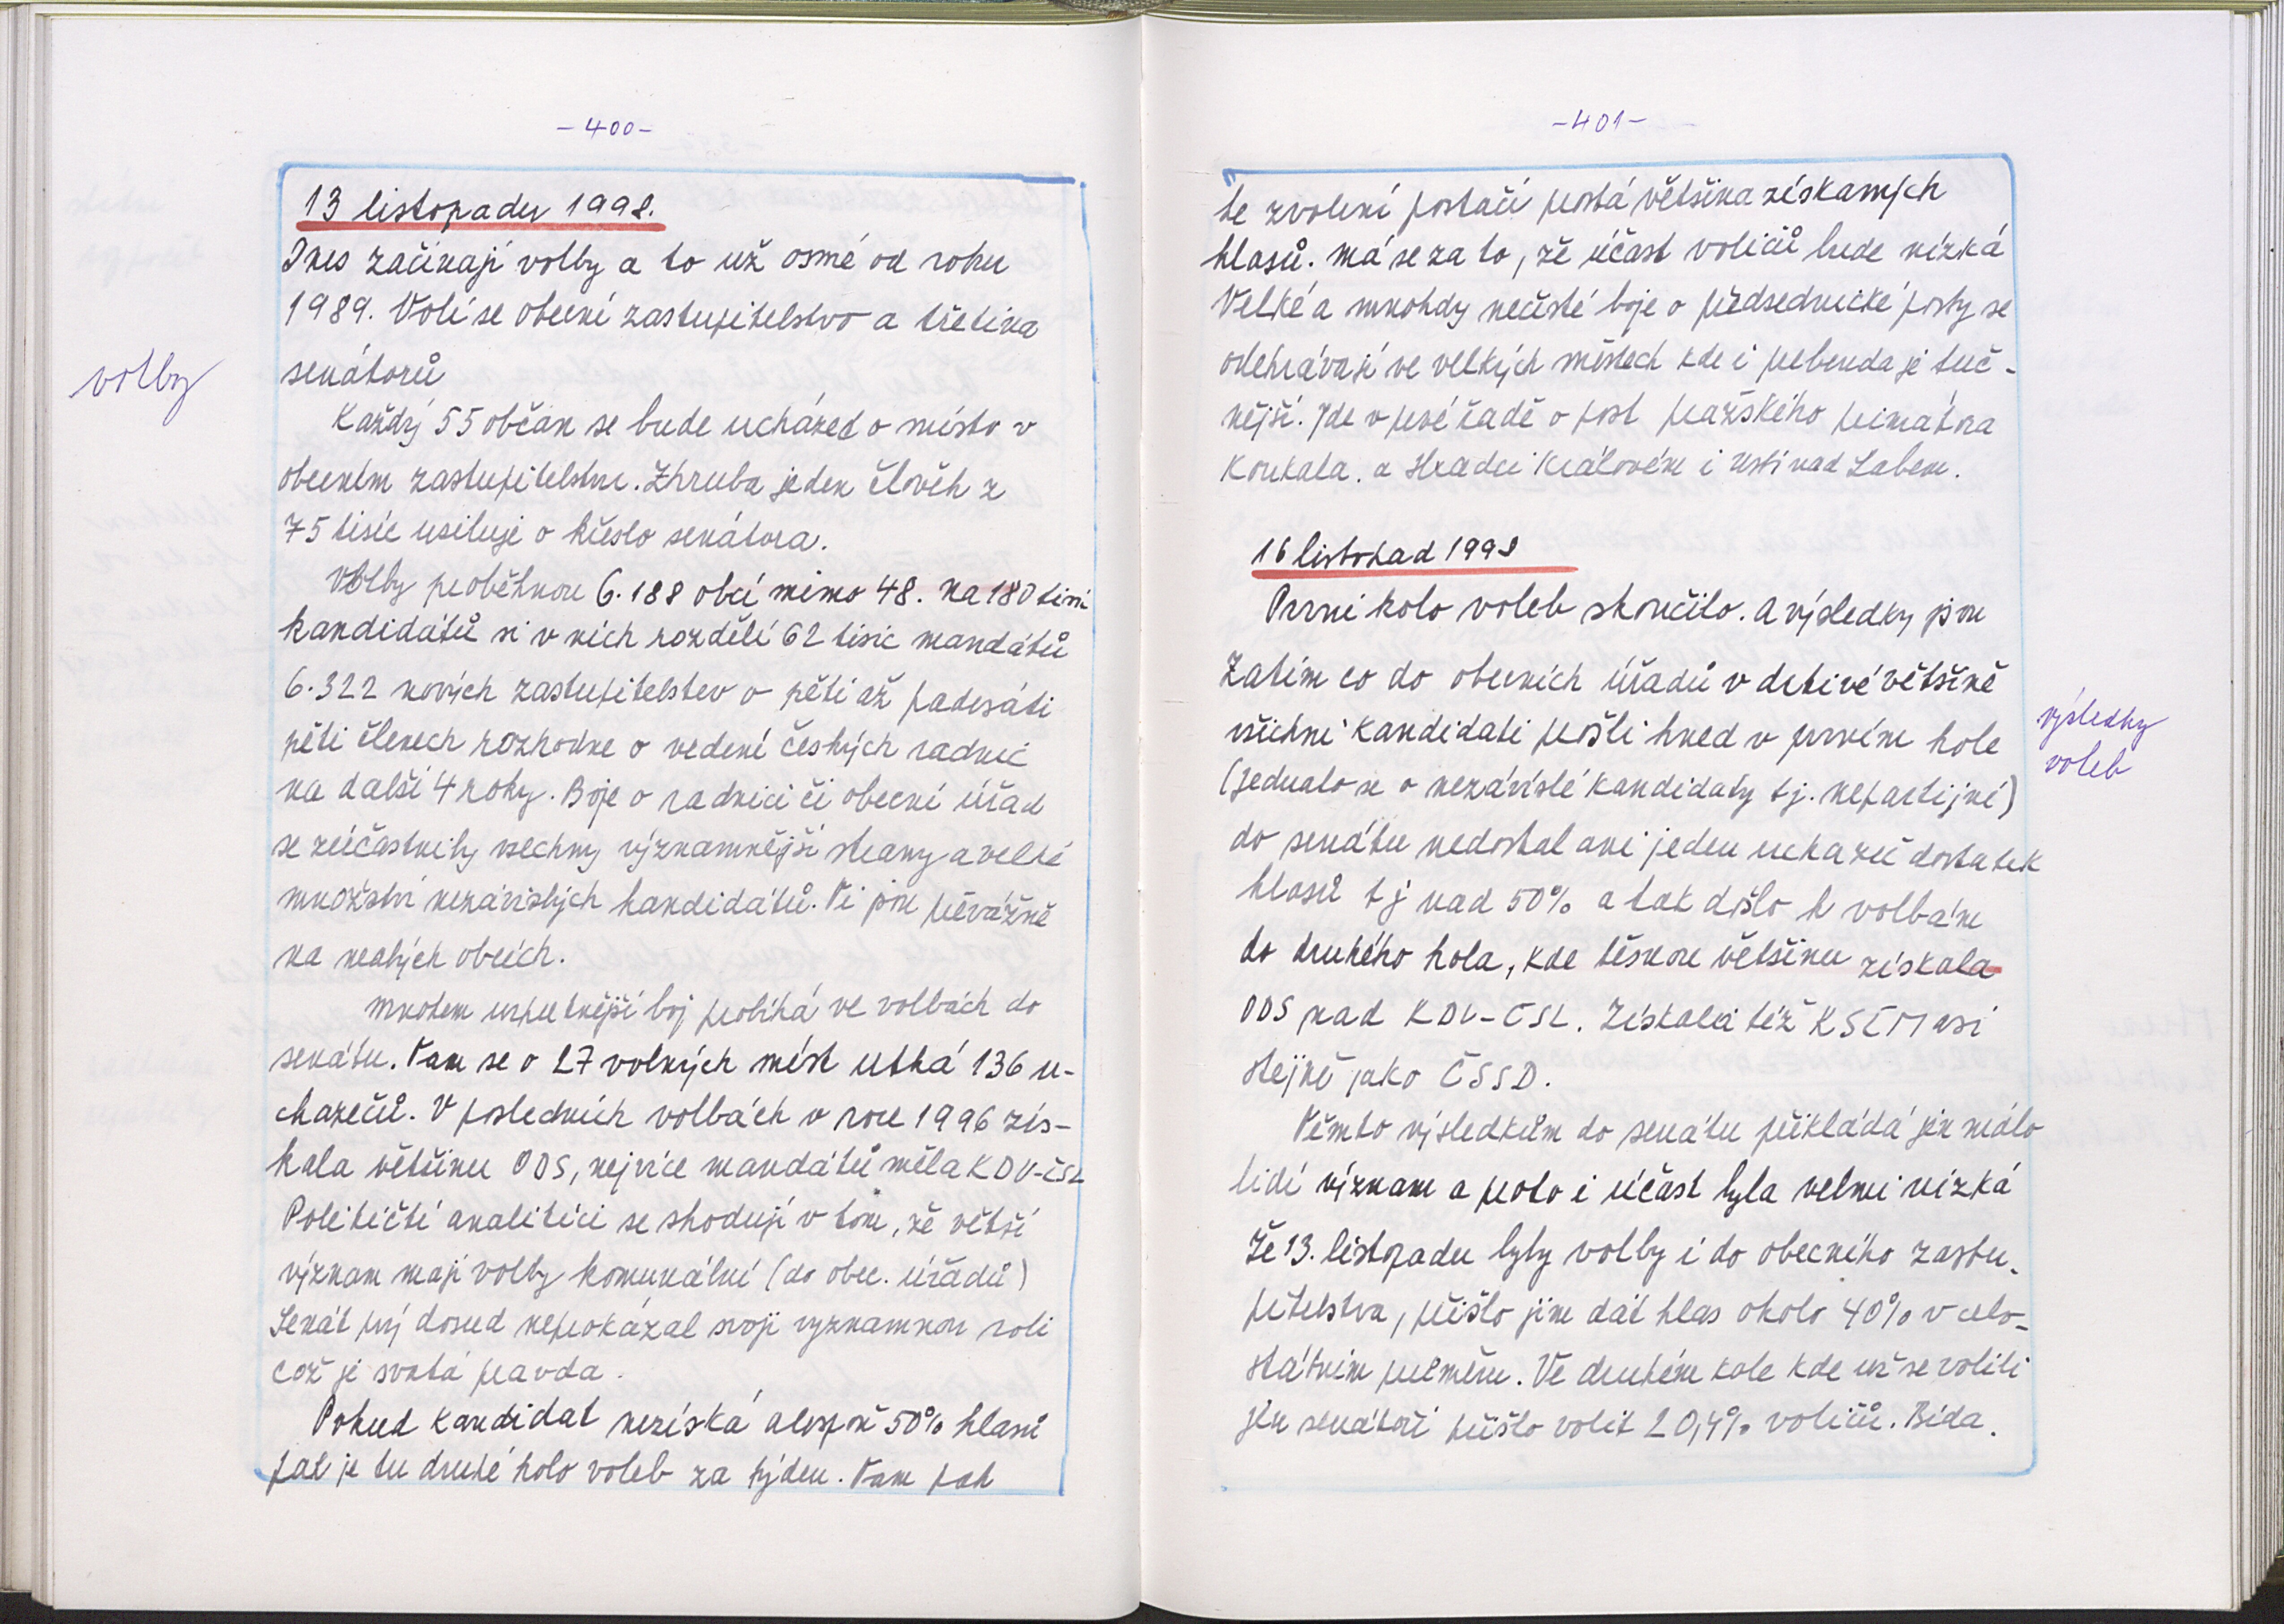 -400-
13 listopadu 1998.
Dnes začínají volby a to už osmé od roku
1989. Volí se obecní zastupitelstvo a třetina
senátorů
volby
Každý 55 občan se bude ucházed o místo v
obecním zastupitelstvu. Zhruba jeden člověk z
75 tisíc usiluje o křeslo senátora.
Volby proběhnou 6.188 obcí mimo 48. Na 180 tisíc
kandidátů si v nich rozdělí 62 tisíc mandátů
6.322 nových zastupitelstev o pěti až padesáti
pěti členech rozhodne o vedení českých radnic
na další 4 roky. Boje o radnici či obecní úřad
se zúčastnily vsechny významnější strany a velké
množství nezávislých kandidátů. Ti jsou převážně
na malých obcích.
Mnohem urputnější boj probíhá ve volbách do
senátu. Tam se o 27 volných míst utká 136 u-
chazečů. V posledních volbách v roce 1996 zís-
kala většinu ODS, nejvíce mandátů měla KDU-ČSL
Političtí analitici se shodují v tom, že větší
význam mají volby komunální (do obec. úřadů)
Senát prý dosud neprokázal svoji vyznamnou roli
což je svatá pravda.
Pokud kandidat nezíská alespoň 50% hlasů
pak je tu druhé kolo voleb za týden. Tam pak
-401-
ke zvolení postačí prostá většina získaných
hlasů. Má se za to, že účast voličů bude nízká
Velké a mnohdy nečisté boje o předsednické posty se
odehrávají ve velkých městech kde i prebenda je tuč-
nější. Jde v prvé řadě o post pražského primátora
Koukala. a Hradci Královém i Ustí nad Labem.
16 listopad 1998
Prrní kolo voleb skončilo. A výsledky jsou
Zatím co do obecních úřadů v drtivé většině
všichni kandidati prošli hned v prvním kole
(Jednalo se o nezávislé kandidáty tj. nepartijní)
výsledky
voleb
do senátu nedostal ani jeden uchazeč dostatek
hlasů tj nad 50% a tak došlo k volbám
do druhého kola, kde těsnou většinu získala
ODS nad KDU-ČSL. Získala též KSČM asi
stejně jako ČSSD.
Těmto výsledkům do senátu přikládá jen málo
lidí význ­am a proto i účast byla velmi nízká
Že 13. listopadu byly volby i do obecního zastu-
pitelstva, přišlo jim dát hlas okolo 40% v celo-
státním průměru. Ve druhém kole kde už se volili
jen senátoři přišlo volit 20,4% voličů. Bída.